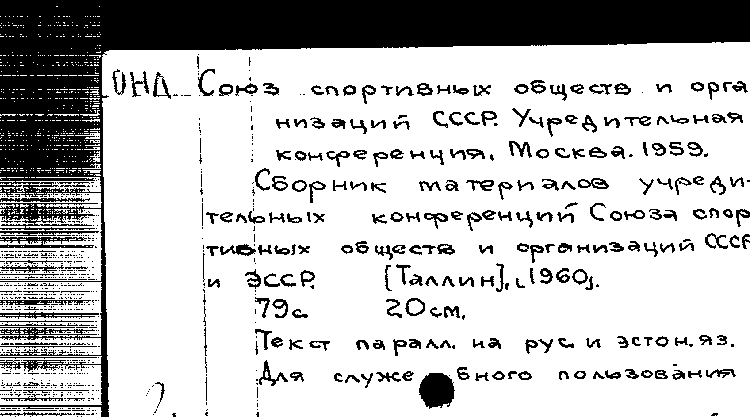 ОНД Союз спортивных обществ и орга
низаций СССР. Учредительная
конференция, Москва. 1959.
Сборник материалов учреди-
тельных конференций Союза спор
тивных обществ и организаций СССР
и ЭССР. [Таллин], [1960].
79с. 20см.
Текст паралл. на рус. и эстон. яз.
Для служебного пользования